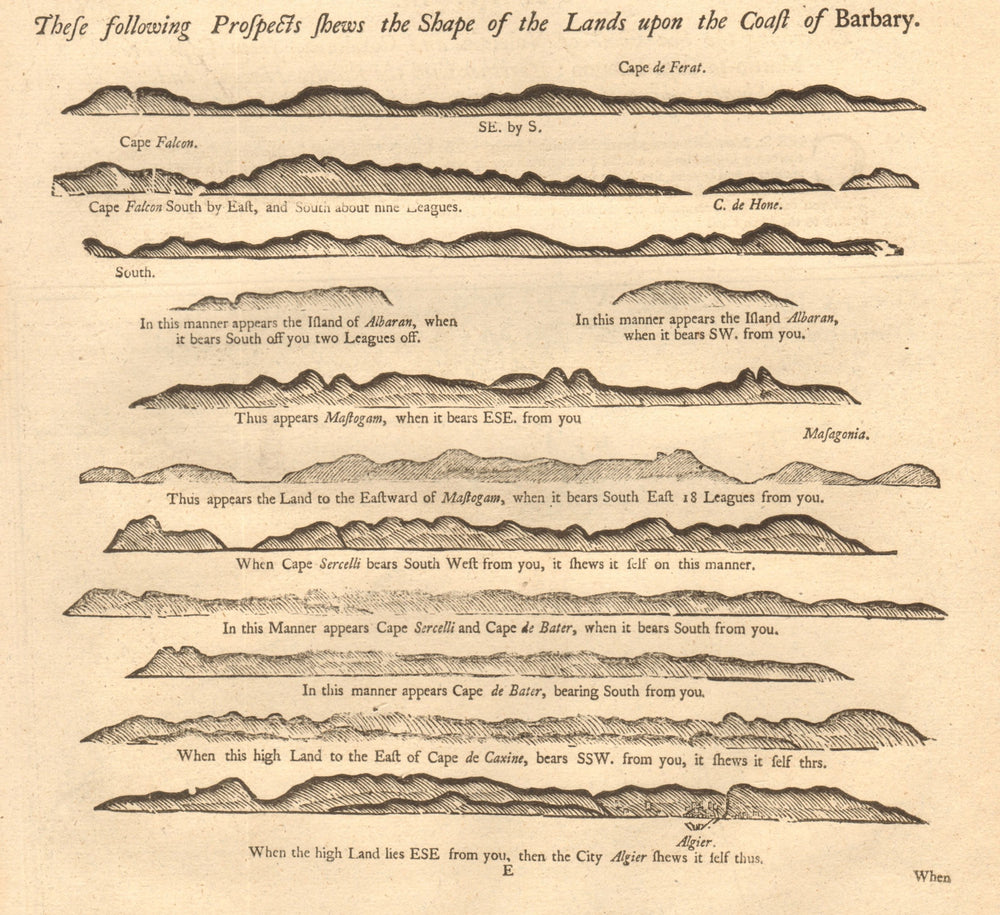 Theſe following Proſpects ſhews the Shape of the Lands upon the Coaſt of Barbary.
Cape de Ferat.
SE. by S.
Cape Falcon.
Cape Falcon South by Eaſt, and South about nine Leagues.
C. de Hone.
South.
In this manner appears the Iſland of Albaran, when
it bears South off you two Leagues off.
In this manner appears the Iſland Albaran,
when it bears SW. from you.
Thus appears Maſtogam, when it bears ESE. from you
Maſagonia.
Thus appears the Land to the Eaſtward of Maſtogam, when it bears South Eaſt 18 Leagues from you.
When Cape Sercelli bears South Weſt from you, it ſhews it ſelf on this manner.
In this Manner appears Cape Sercelli and Cape de Bater, when it bears South from you.
In this manner appears Cape de Bater, bearing South from you.
When this high Land to the Eaſt of Cape de Caxine, bears SSW. from you, it ſhews it ſelf thrs.
Algier.
When the high Land lies ESE from you, then the City Algier ſhews it ſelf thus.
E
When